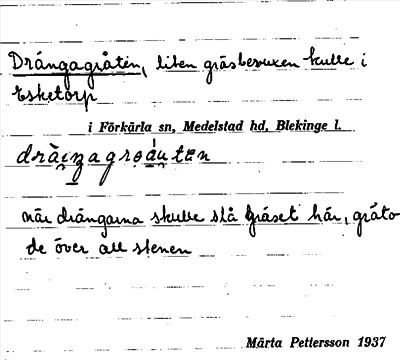 Drängagråten, liten gräsbevuxen kulle i
Esketorp
i Förkärla sn, Medelstad hd, Blekinge l.
när drängarna skulle slå gräset här, gråto
de över all stenen
Märta Pettersson 1937